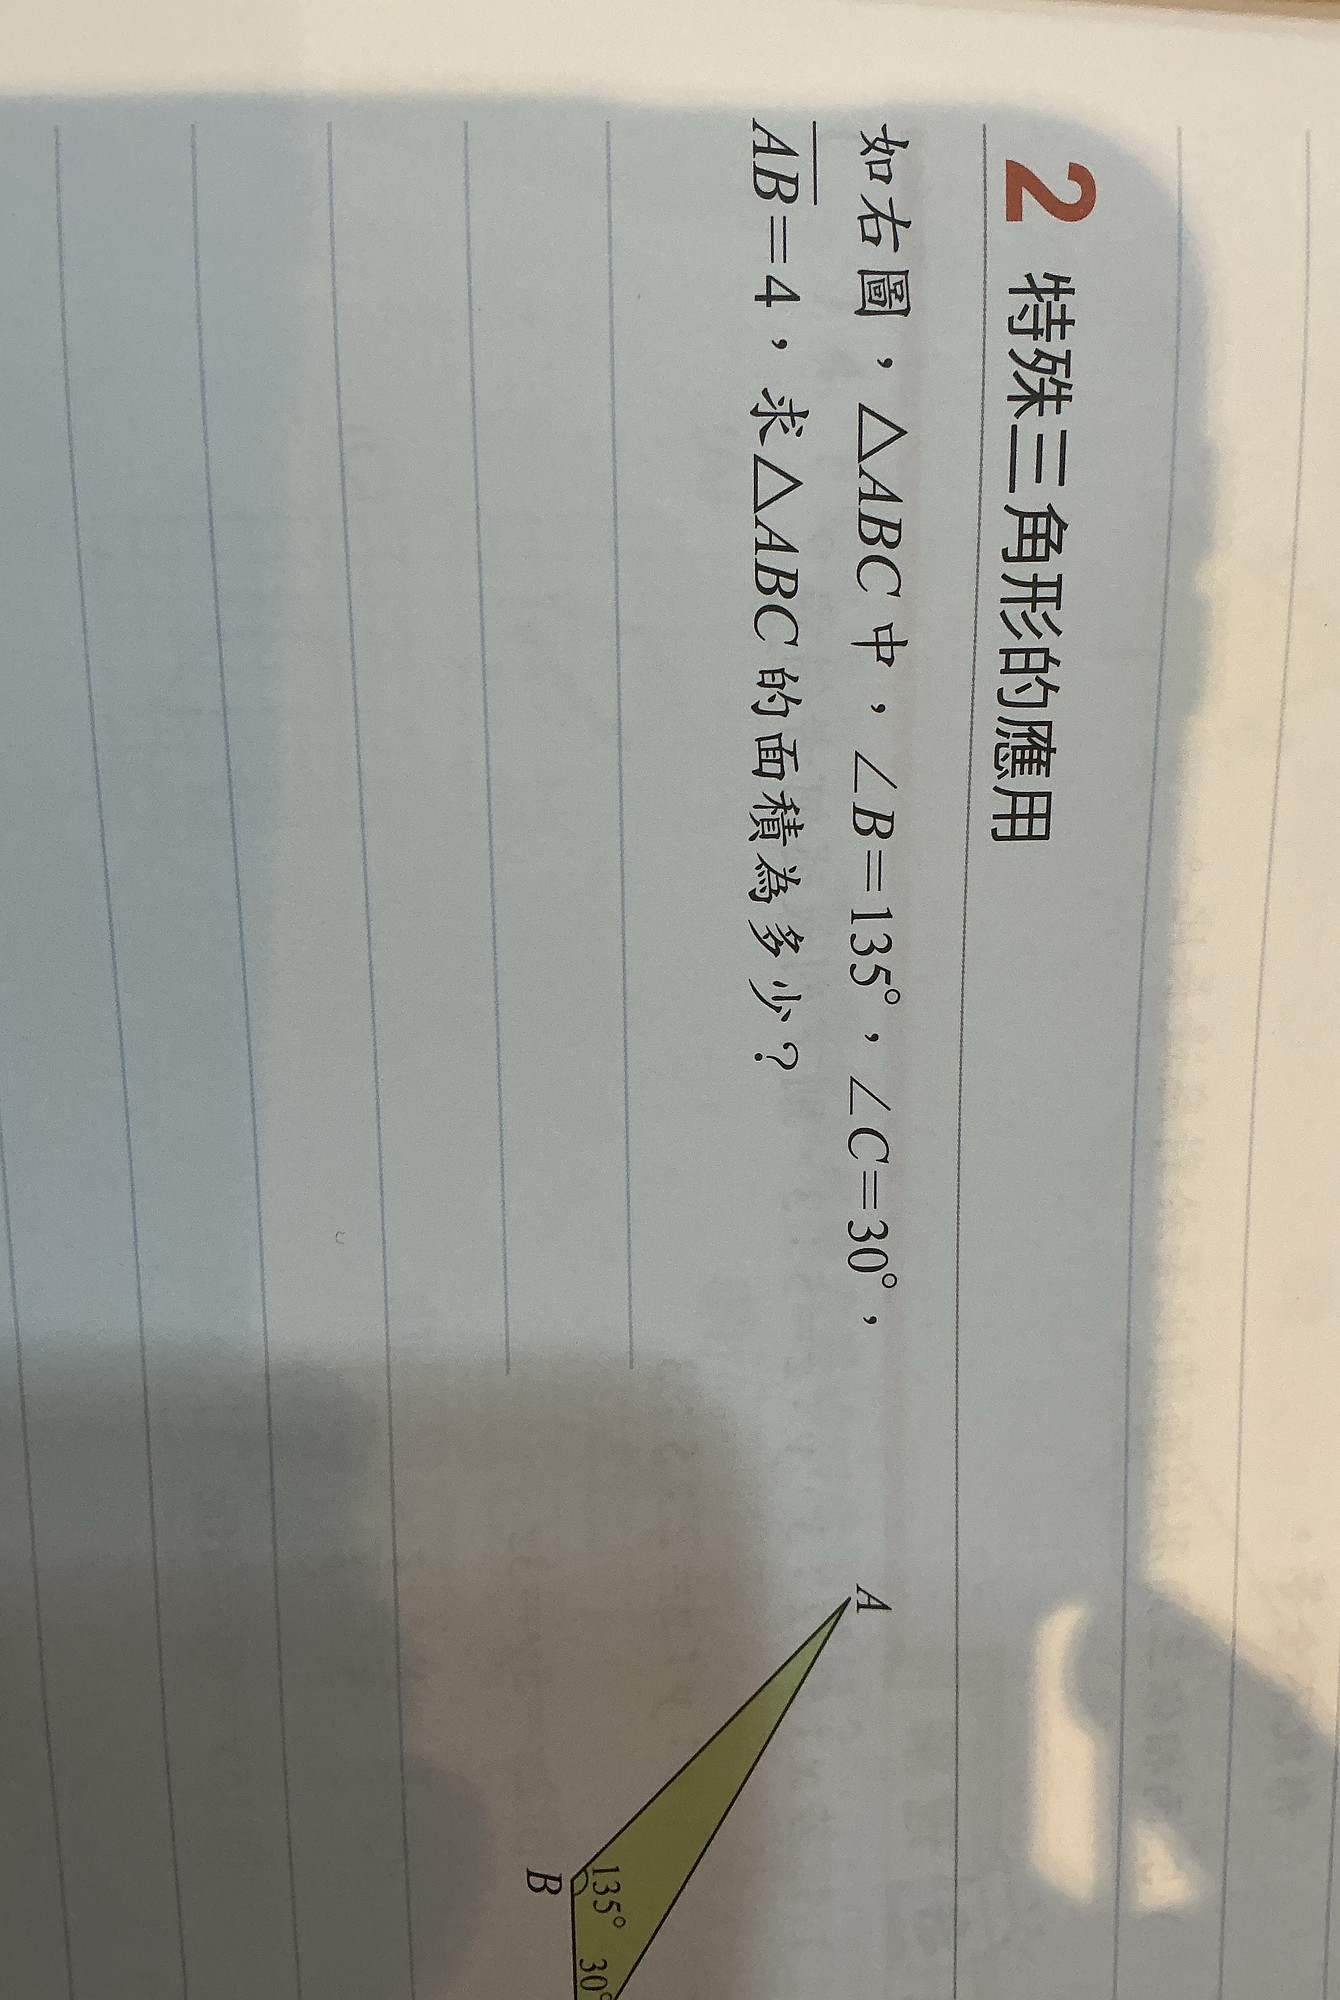 2 特殊三角形的應用
如右圖，△ABC中，∠B=135°，∠C=30°，
AB=4，求△ABC的面積為多少？
A
135°
30°
B